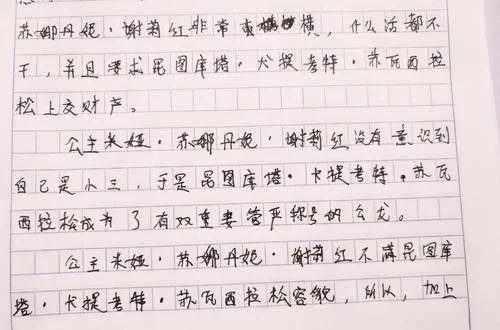 苏娜丹妮·谢莉红非常蛮横，什么活都不
干，并且要求昆图库塔·卡提考特·苏瓦西拉
松上交财产。
公主米娅·苏娜丹妮·谢莉红没有意识到
自己是小三，于是昆图库塔·卡提考特·苏瓦
西拉松成为了有双重妻管严称号的公龙。
公主米娅·苏娜丹妮·谢莉红不满昆图库
塔·卡提考特·苏瓦西拉松容貌，所以，加上